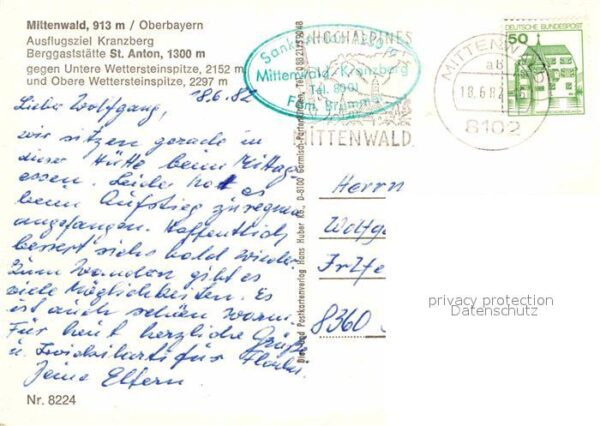 Mittenwald, 913 m / Oberbayern
Ausflugsziel Kranzberg
Berggaststätte St. Anton, 1300 m
gegen Untere Wettersteinspitze, 2152 m
und Obere Wettersteinspitze, 2297 m
18.6.82
Liebe Wolfgang,
wir sitzen gerade in
dieser Hütte beim Mittag-
essen. Leider hat es
beim Aufstieg zu regnen
angefangen. Hoffentlich
bessert sichs bald wieder.
Zum Wandern gibt es
viele Möglichkeiten. Es
ist auch schön warm.
Für heut herzliche Grüße
u.
Deine Eltern
Nr. 8224
Sankt Anton
Mittenwald-Kranzberg
Tel. 8001
Fam.
HOCHALPINES
MITTENWALD
Bild und Postkartenverlag Hans Huber KG., D-8100 Garmisch-Partenkirchen, Tel.
MITTENWALD
aB
18.6.82
8102
50
DEUTSCHE BUNDESPOST
Herrn
Wolfga
8360
privacy protection
Datenschutz